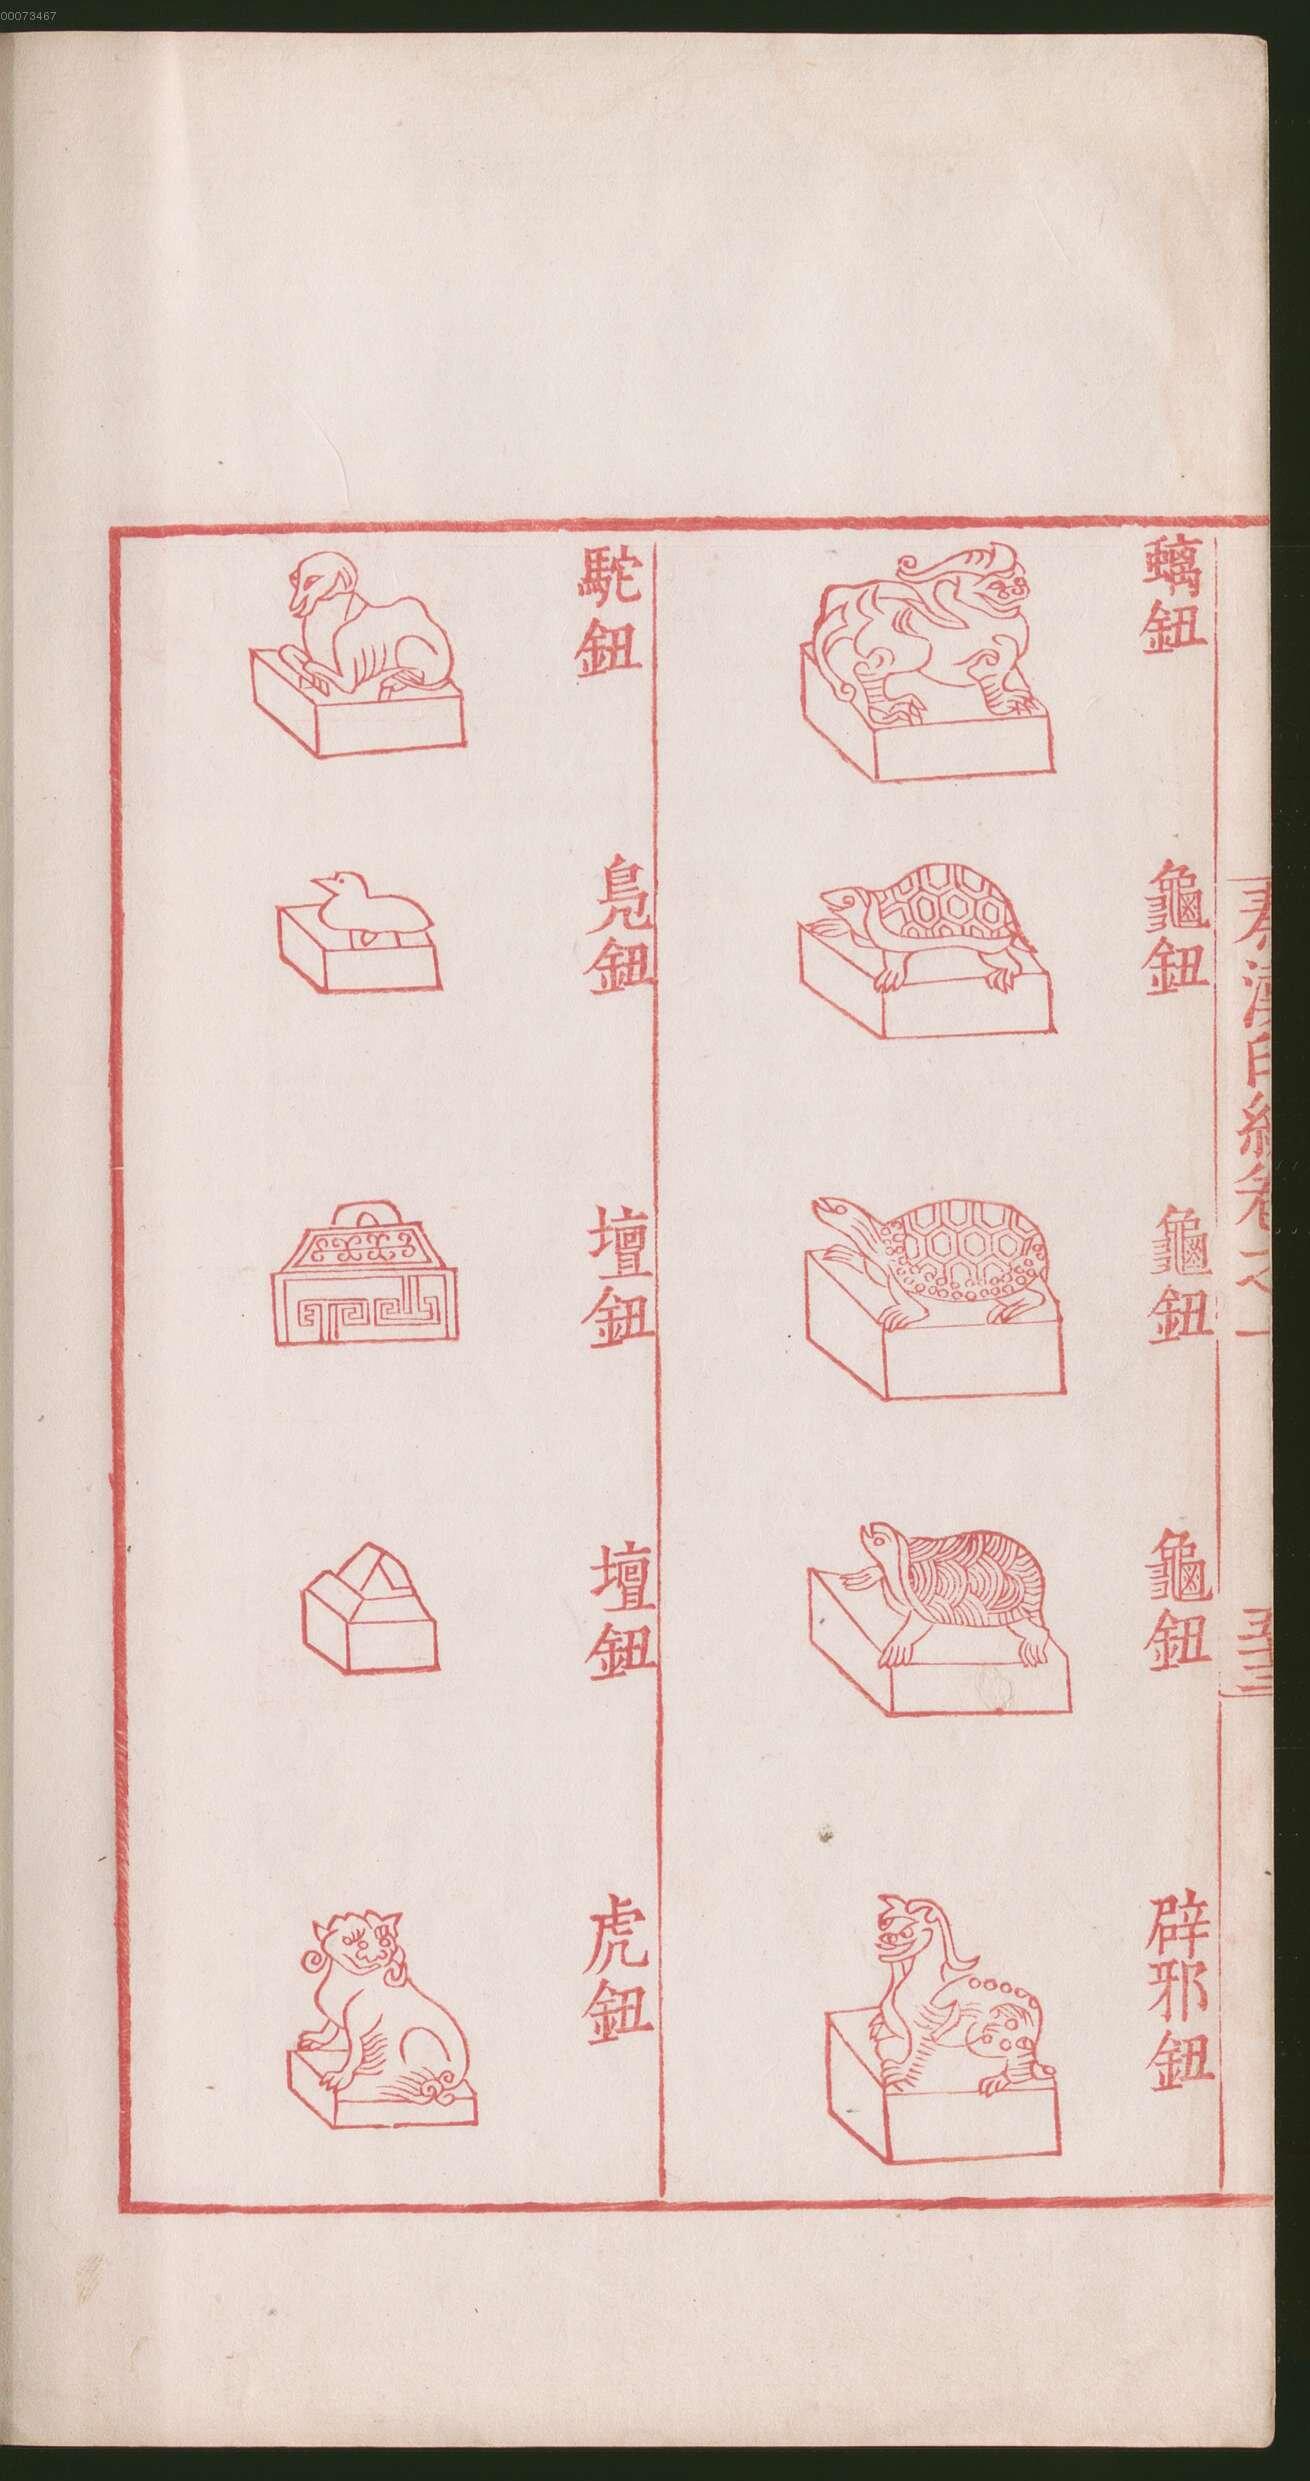 00073467
秦漢印統卷之一
五十三
螭鈕
龜鈕
龜鈕
龜鈕
辟邪鈕
駝鈕
鳧鈕
壇鈕
壇鈕
虎鈕